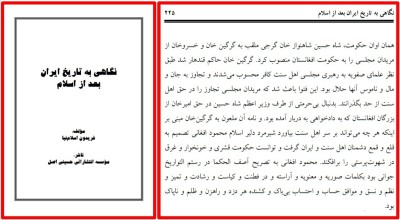 نگاهی به تاریخ ایران
بعد از اسلام
مؤلف:
فریدون اسلام‌نیا
ناشر:
مؤسسه انتشاراتی حسینی اصل
نگاهی به تاریخ ایران بعد از اسلام
۲۲۵
همان اوان حکومت، شاه حسین شاهنواز خان گرجی ملقب به گرگین خان و خسروخان از
مریدان مجلسی را به حکومت افغانستان منصوب کرد. گرگین خان حاکم قندهار شد طبق
نظر علمای صفویه به رهبری مجلسی اهل سنت کافر محسوب می‌شدند و تجاوز به جان و
مال و ناموس آنها حلال بود. این فتوا باعث شد که مریدان مجلسی تجاوز را در حق اهل
سنت از حد بگذرانند. بدنبال بی‌حرمتی از طرف وزیر اعظم شاه حسین در حق امیرخان از
بزرگان افغانستان که به دادخواهی به دربار آمده بود. و نامه آن ملعون به گرگین‌خان مبنی بر
اینکه هر چه می‌تواند بر سر اهل سنت بیاورد شیرمرد دلیر اسلام محمود افغانی تصمیم به
قلع و قمع دشمنان اهل سنت و ایران گرفت و توانست حکومت قشری و خونخوار و غرق
در شهوت‌پرستی را برافکند. محمود افغانی به تصریح آصف الحکما در رستم التواریخ
جوانی بود بکلمات صوریه و معنویه و آراسته و در فطنت و کیاست و رشادت و تمیز و
نظم و نسق و موافق حساب و احتساب بی‌باک و کشنده هر دزد و راهزن و ظلم و ناپاک
بود.